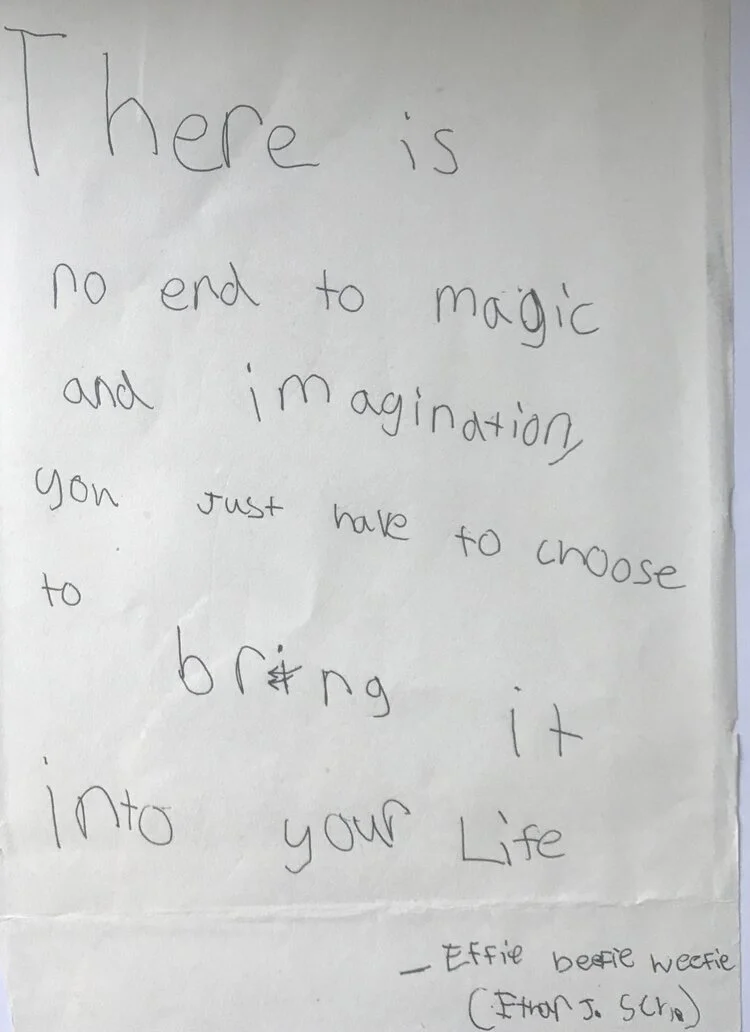 There is
no end to magic
and imagination,
you just have to choose
to
bring it
into your Life
— Effie beefie weefie
(Ethan J.